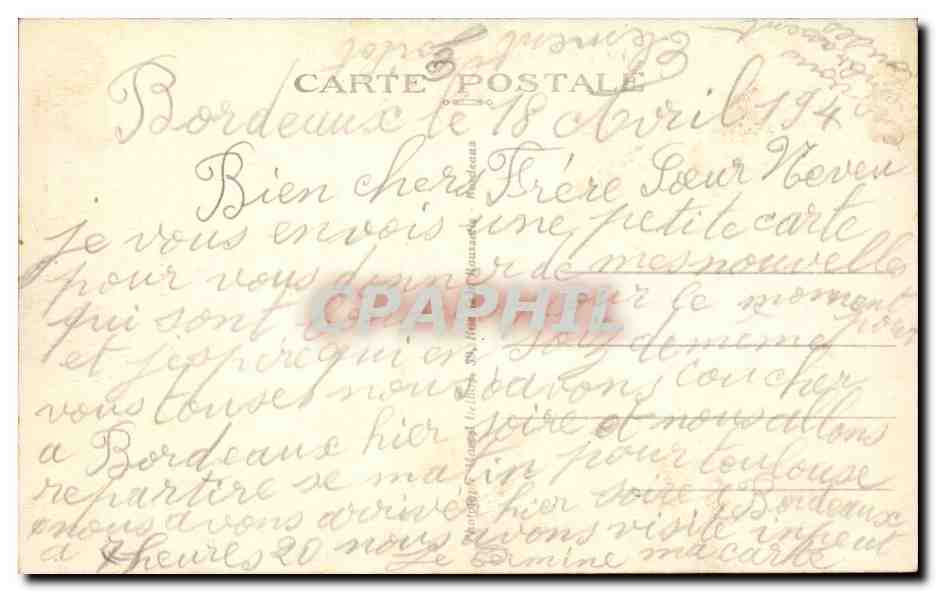 CARTE POSTALE
Bordeaux le 18 Avril 194
Bien chers Frére Soeur Neveu
je vous envois une petite carte
pour vous donner de mes nouvelles
qui sont pour le moment
et jespére qui en soiz de meme pour
vous touse nous avons coucher
a Bordeaux hier soire et nous allons
repartire se matin pour toulouse
nous avons arriver hier soire a Bordeaux
a 7 heures 20 nous avons visité inpeut
Je termine ma carte
Clement
CPAPHIL